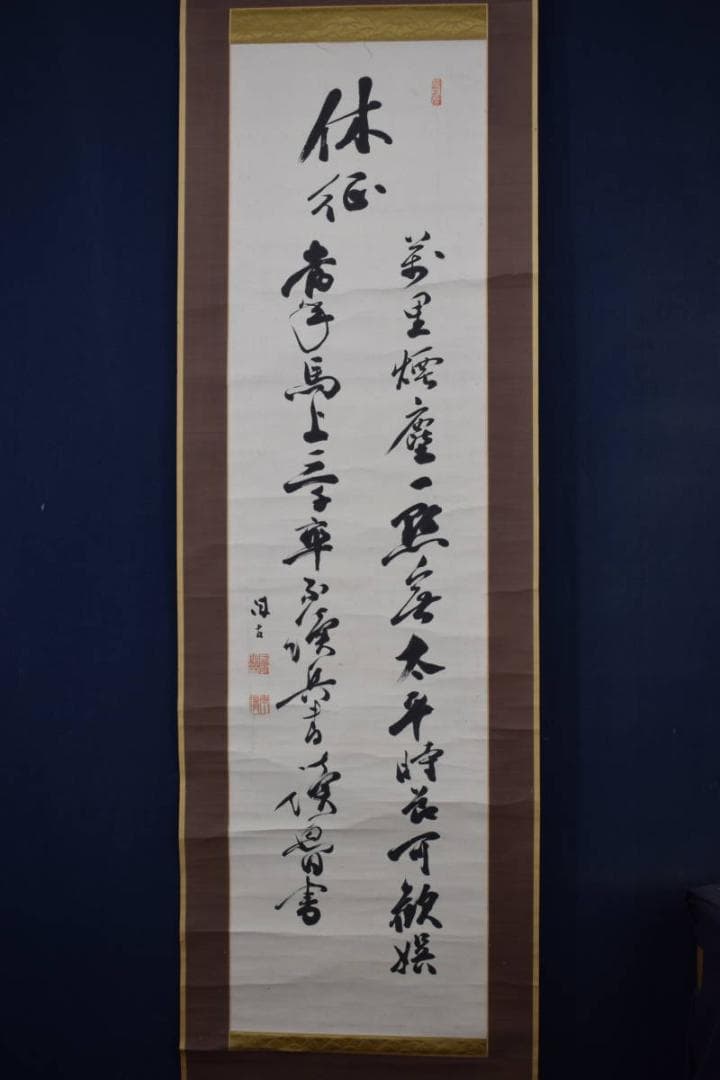 休征
萬里煙塵一點無太平時節可歡娯
青年馬上三千卒不讀兵書讀魯書